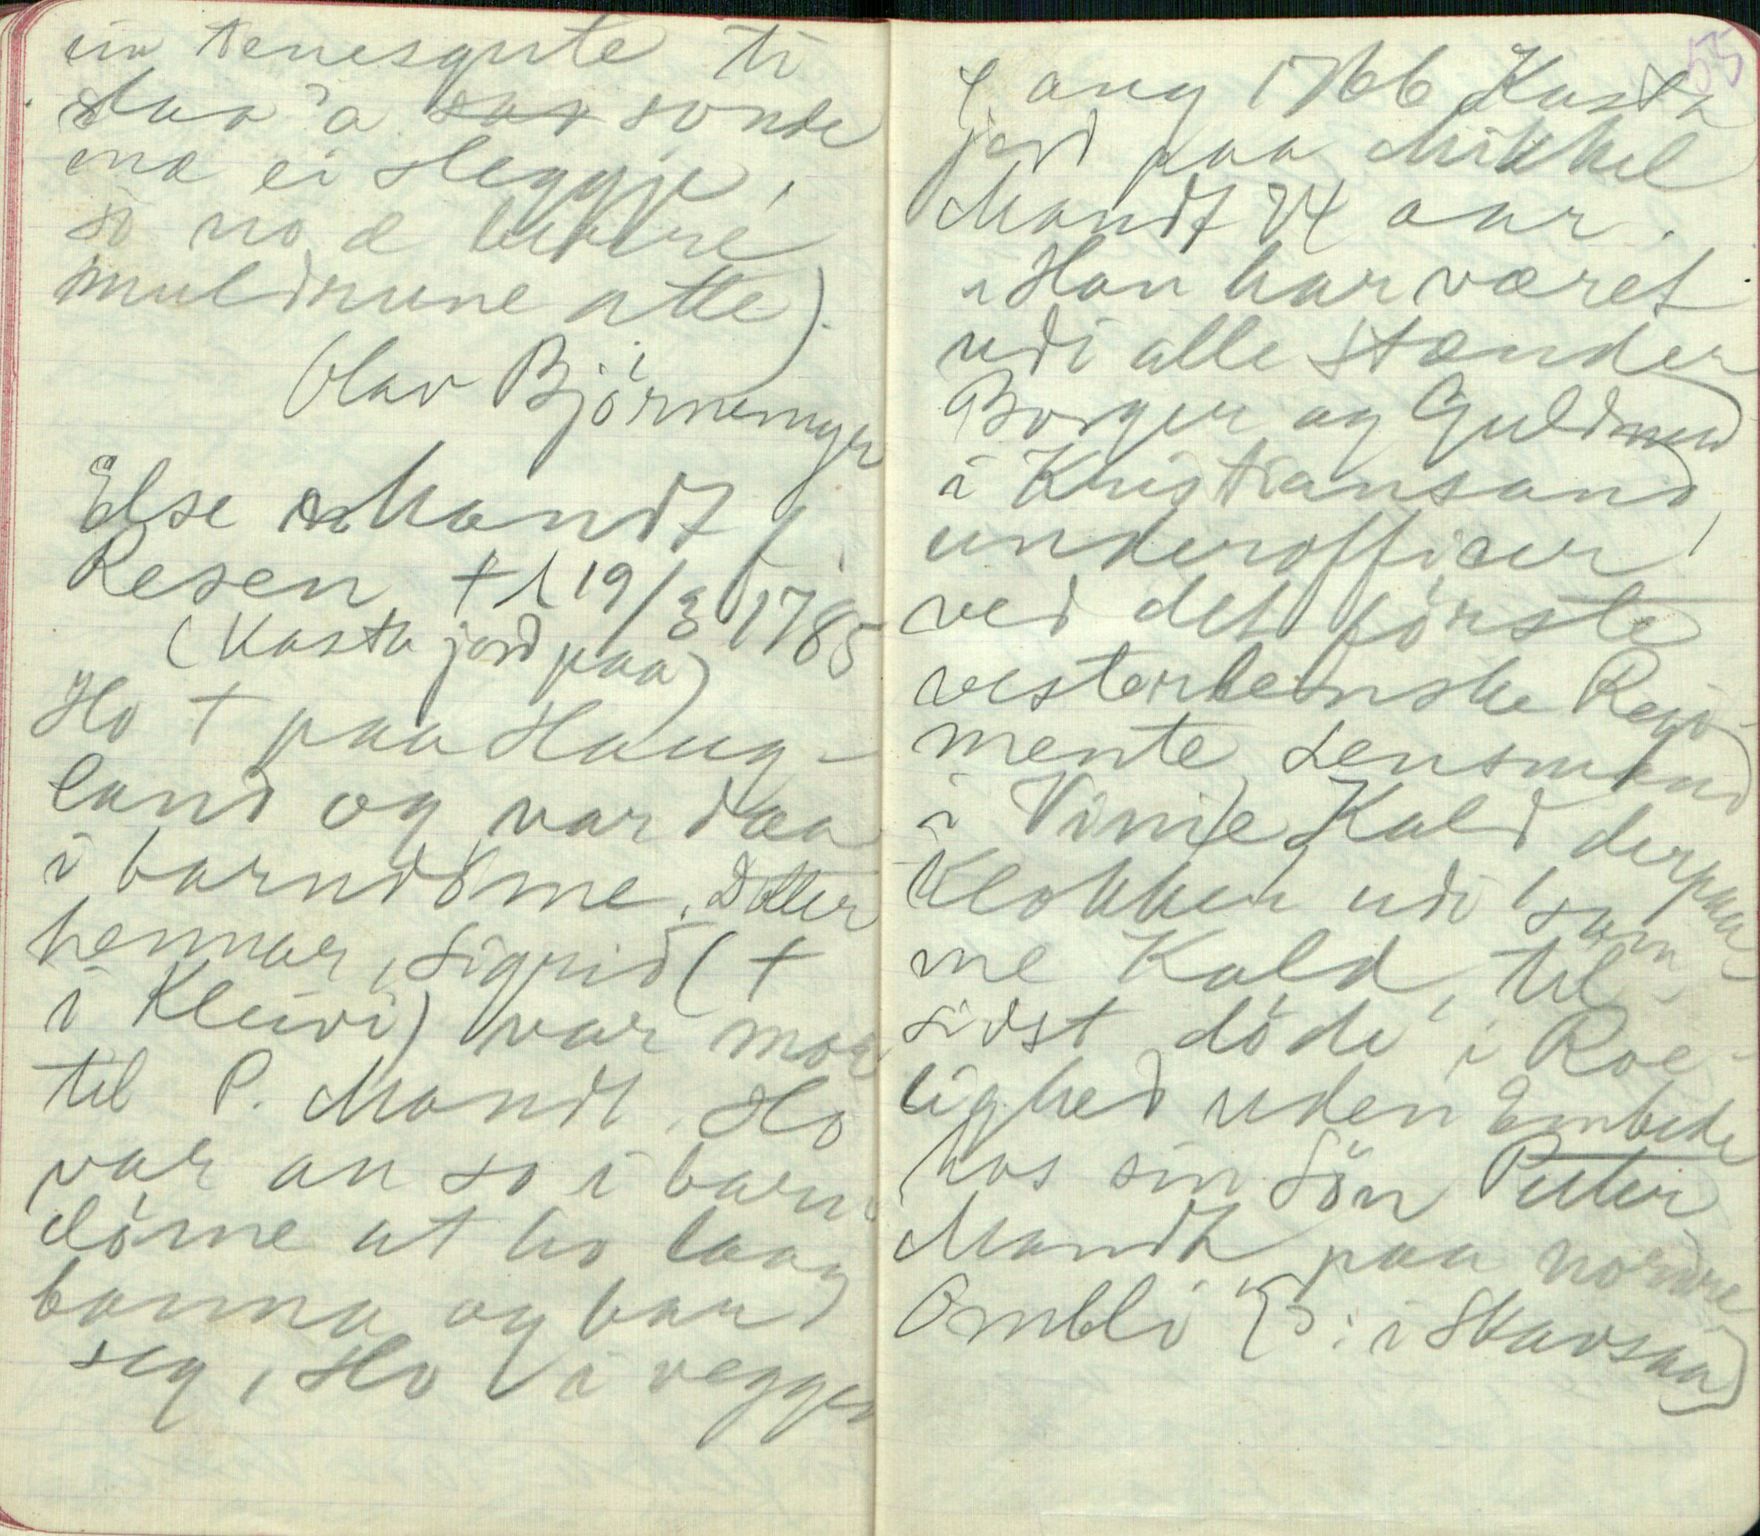 ein tenesgute ti
slaa 'a sas sonde
mæ ei sleggje,
so no æ berre
muldrune atte).
Olav Björnemyr
Else Mandt f.
Resen + 19/3 1785
(Kasta jord paa)
Ho + paa Haug-
land og var daa
i barndöme. Dotter
hennar, Sigrid (+
i Kleivi) var mor
til P. Mandt. Ho
var an so i barn-
döme at ho laag
banna og bar
seg, Ho i veggen
55
4 aug 1766 Kasta
jord paa Mikkel
Mandt 74 aar.
"Han har været
udi alle Stænder
Borger og Guldmed
i Kristiansand,
underofficer
ved det förste
vesterlenske Regi-
mente, Lensmand
i Vinje Kald derpaa
Klokker udi sam-
me Kald, til
sidst döde i Roe-
lighed uden Embede
hos sin Sön Peter
Mandt paa nordre
Ombli" (ɔ: i Skavsaa)